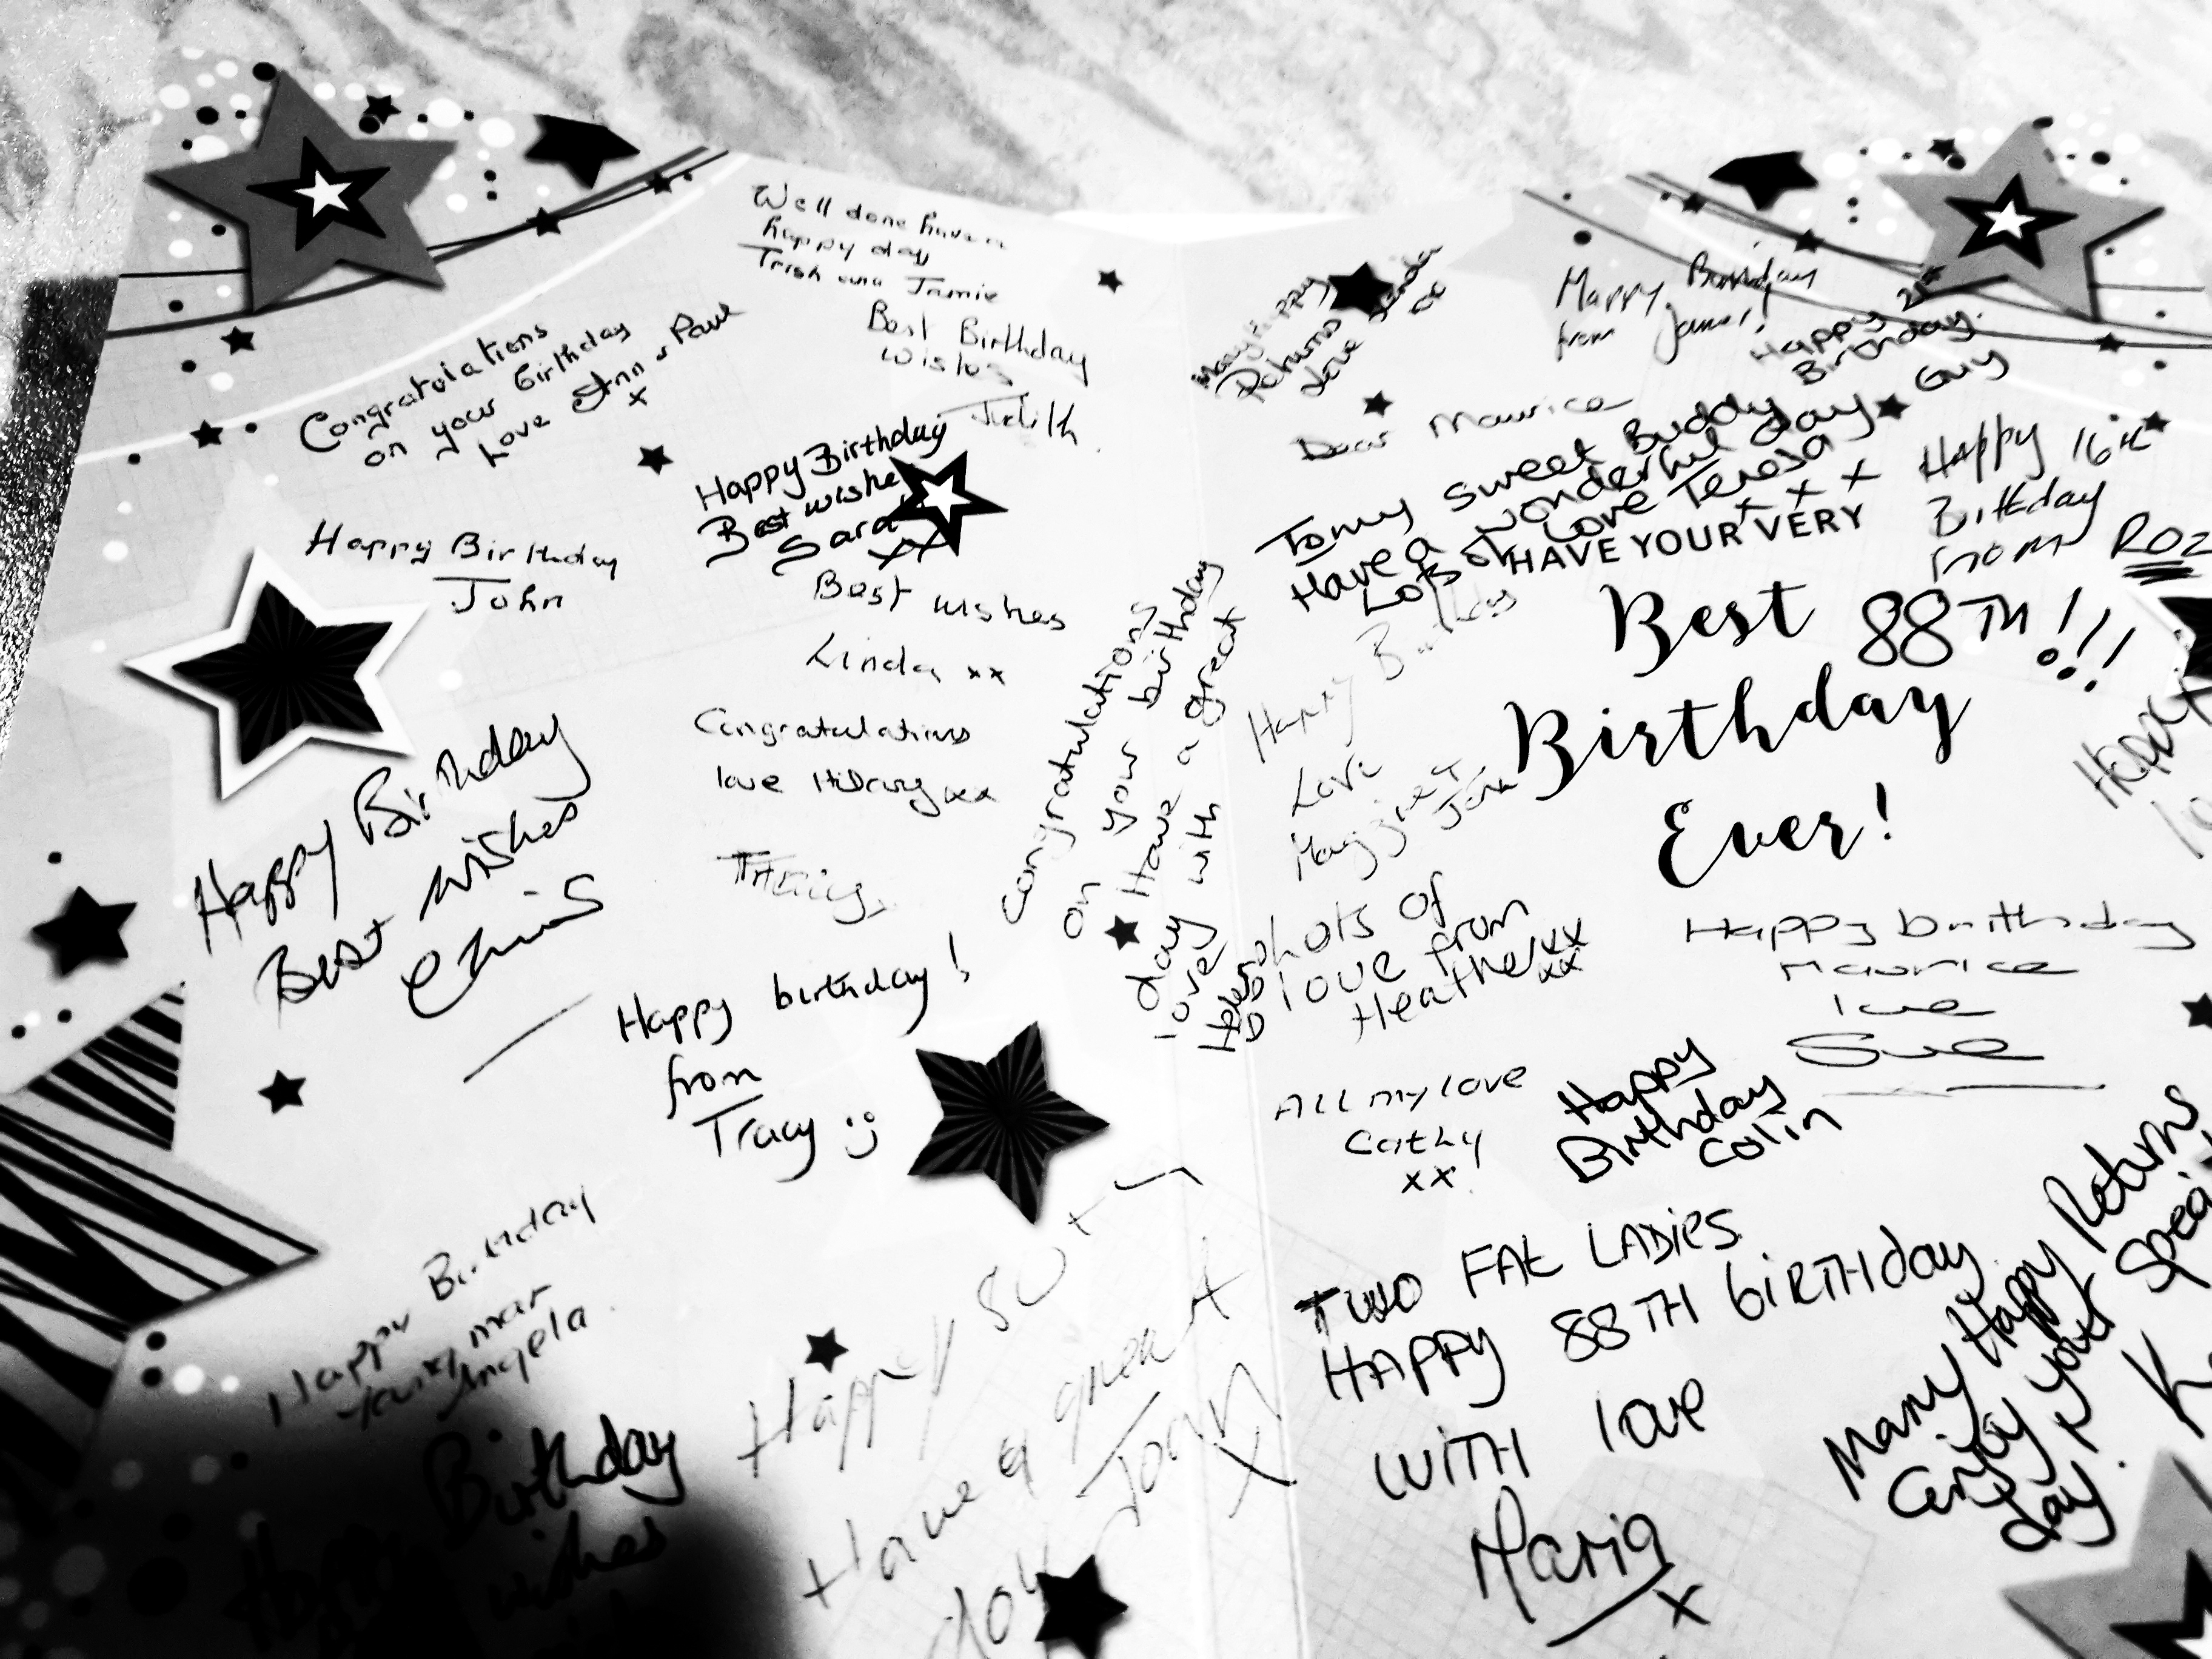 Well done have a
happy day
Trish and Jamie
Congratulations
on your birthday
Love Ann & Paul
x
Best Birthday
wishes
Judith
Happy Birthday
Best wishes
Sara
xx
Happy Birthday
John
Best wishes
Linda xx
Congratulations
love Hilary xx
Happy Birthday
Best wishes
Chris
Happy birthday!
from
Tracy :)
Happy Birthday
young man
Angela.
Birthday
wishes
Happy
Have a great
day
Joan
X
congratulations
on your birthday
Have a great
day with
love
Many Happy
Returns
love
xx
Happy Birthday
from
Happy 21st
Birthday.
Guy
Dear Maurice
Tomy sweet Buddy
Have a wonderful day
Lots of Love Teresa
x x x
Happy 16th
Birthday
from ROZ
HAVE YOUR VERY
Best 88TH!!!
Birthday
Ever!
Happy Birthday
Love
lots of
love from
Heather xx
xx
Happy birthday
Maurice
love
Sue
All my love
Cathy
xx
Happy
Birthday
Colin
TWO FAT LADIES
HAPPY 88TH BIRTHday
WITH love
Maria
x
Many Happy Returns
enjoy your
day.